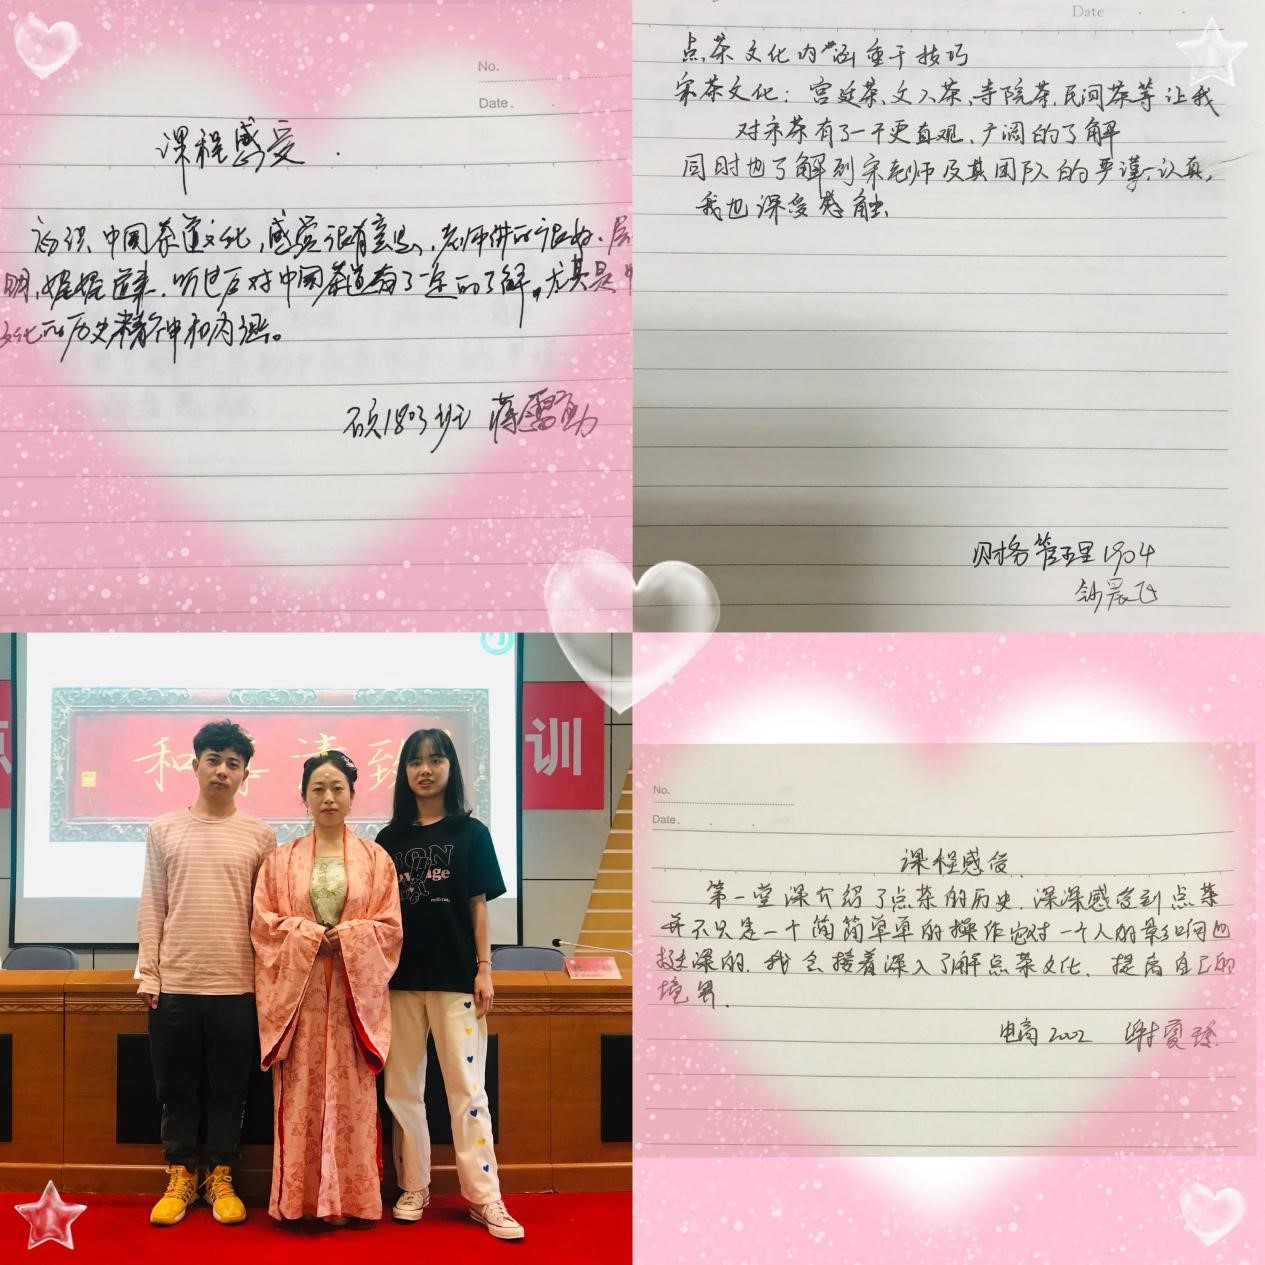 No.
Date.
课程感受.
初识中国茶道文化,感觉很有意思,老师讲的很好.层
明,娓娓道来.听过后对中国茶道有了一定的了解。尤其是中
文化的历史精神和内涵。
硕1803班
Date
点茶文化内涵重于技巧
宋茶文化:宫廷茶、文人茶、寺院茶、民间茶等让我
对宋茶有了一个更直观、广阔的了解
同时也了解到宋老师及其团队的严谨、认真,
我也深受感触
财务管理1904
和 清 致
训
No.
Date.
课程感受.
第一堂课介绍了点茶的历史.深深感受到点茶
并不只是一个简简单单的操作它对一个人的影响也
挺深的.我会接着深入了解点茶文化,提高自己的
境界.
电商2002 谢